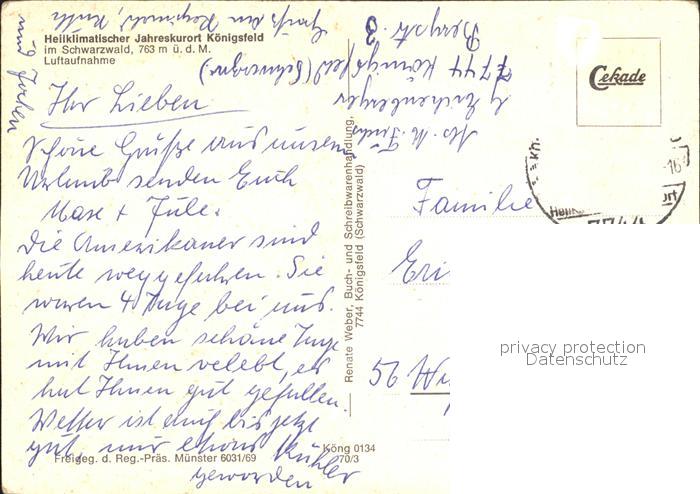 Heilklimatischer Jahreskurort Königsfeld
im Schwarzwald, 763 m ü. d. M.
Luftaufnahme
Ihr Lieben
Schöne Grüße aus unserem
Urlaub senden Euch
Max + Jule.
Die Amerikaner sind
heute weggefahren. Sie
waren 4 Tage bei uns.
Wir haben schöne Tage
mit Ihnen verlebt, es
hat Ihnen gut gefallen.
Wetter ist auch bis jetzt
gut, nur etwas Kühler
geworden
Freigeg. d. Reg.-Präs. Münster 6031/69
Köng 0134
70/3
Renate Weber, Buch- und Schreibwarenhandlung,
7744 Königsfeld (Schwarzwald)
7744 Königsfeld
Bergstr. 3
Cekade
Familie
Eri
56 Wu
7744
privacy protection
Datenschutz